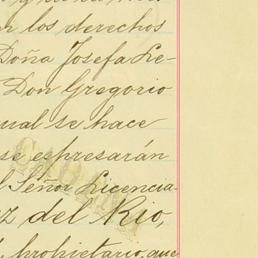 los derechos
Doña Josefa Le-
Don Gregorio
ual se hace
se espresarán
Señor Licencia-
z del Rio,
propietario, que